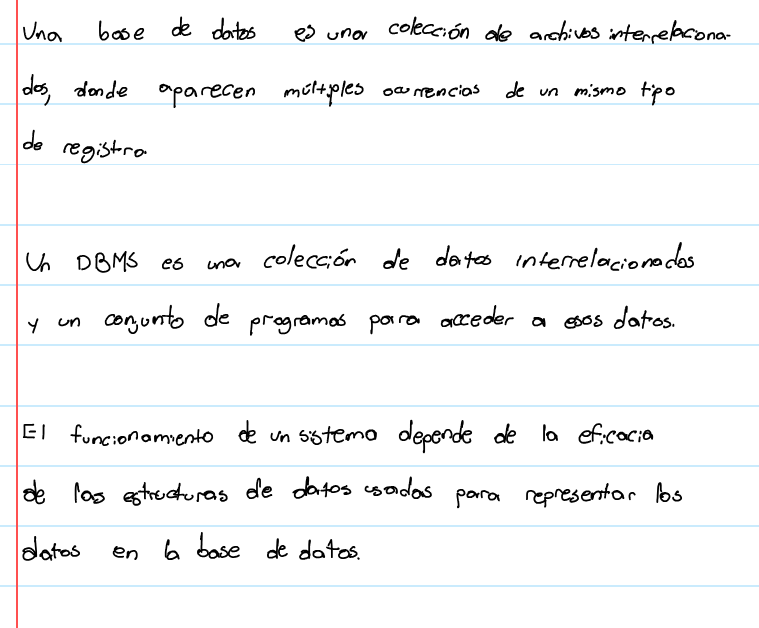 Una base de datos es una colección de archivos interrelaciona-
dos, donde aparecen múltiples ocurrencias de un mismo tipo
de registro.
Un DBMS es una colección de datos interrelacionados
y un conjunto de programas para acceder a esos datos.
El funcionamiento de un sistema depende de la eficacia
de las estructuras de datos usadas para representar los
datos en la base de datos.